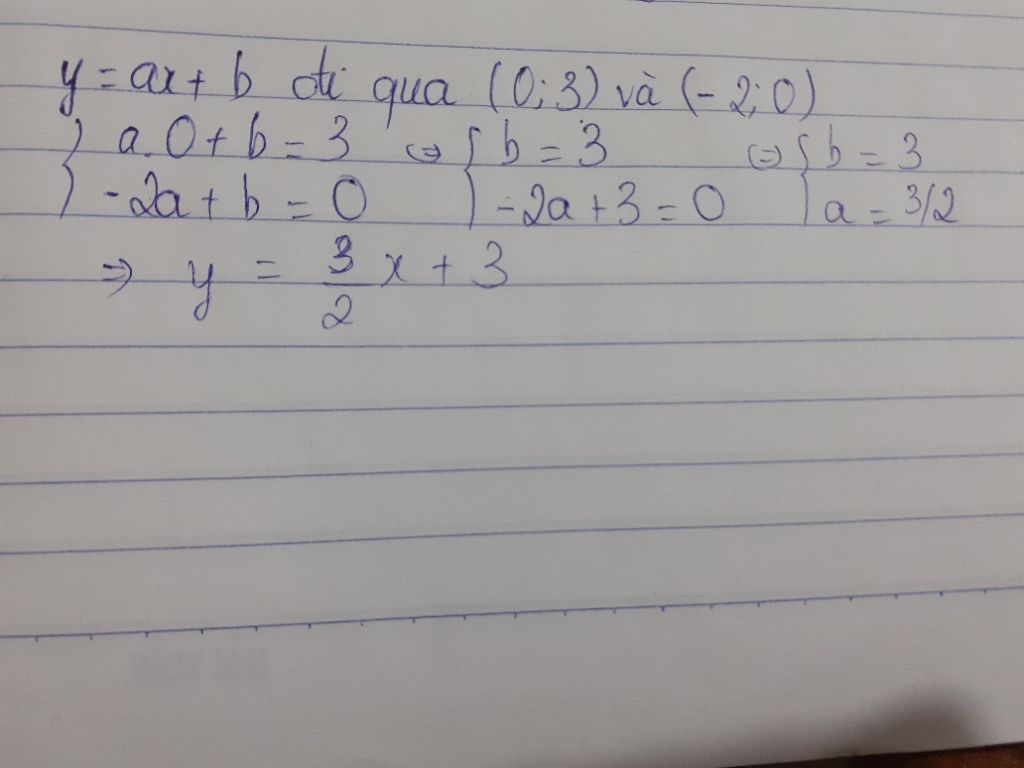 y = ax + b đi qua (0; 3) và (-2; 0)
{ a.0 + b = 3 <=> { b = 3 <=> { b = 3
{ -2a + b = 0 { -2a + 3 = 0 { a = 3/2
=> y = 3/2 x + 3